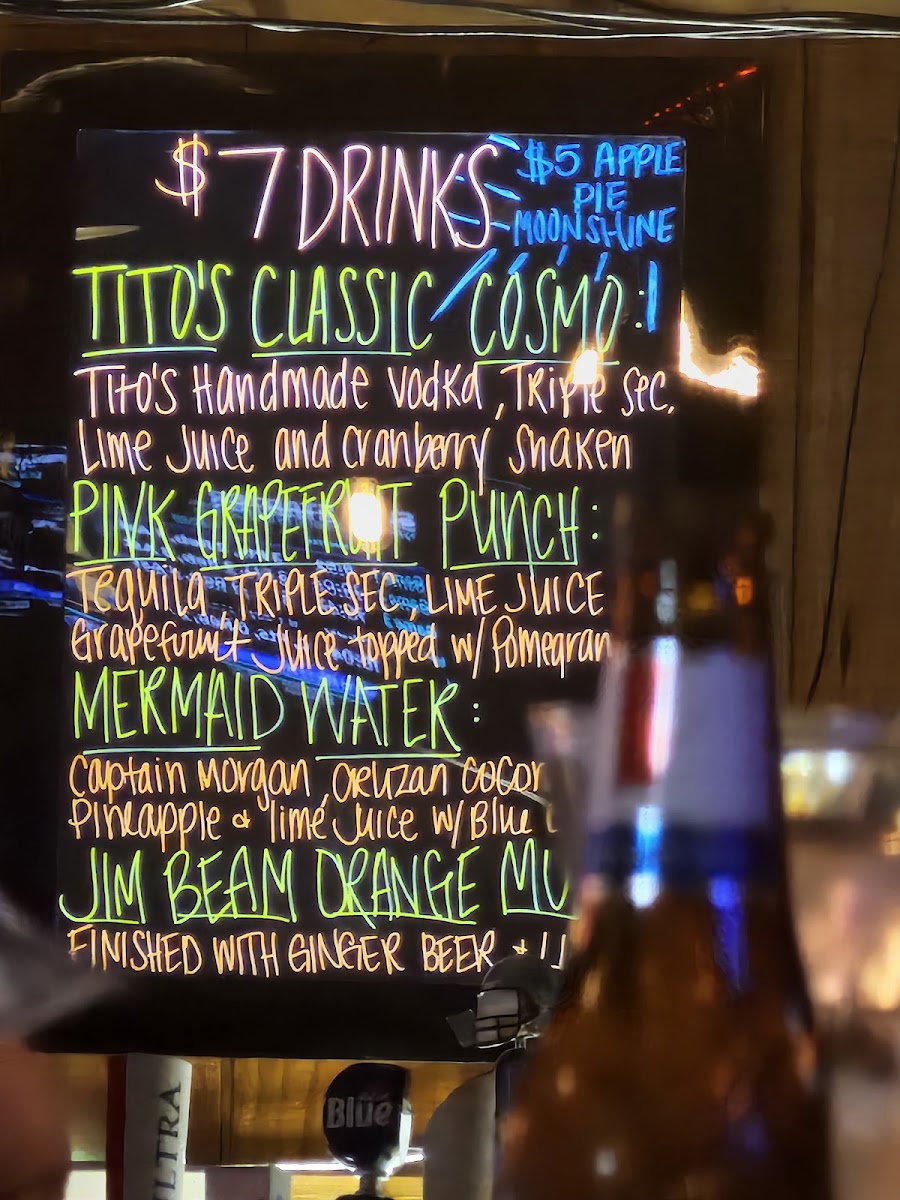 $7 DRINKS
$5 APPLE
PIE
MOONSHINE
TITO'S CLASSIC COSMO:
Tito's Handmade Vodka, Triple Sec,
Lime Juice and Cranberry Shaken
PINK GRAPEFRUIT PUNCH:
Tequila TRIPLE SEC, LIME JUICE
Grapefruit Juice topped w/ Pomegran
MERMAID WATER:
Captain Morgan, Cruzan Cocon
Pineapple & lime Juice w/ Blue
JIM BEAM ORANGE MU
FINISHED WITH GINGER BEER & LI
ULTRA
Blue